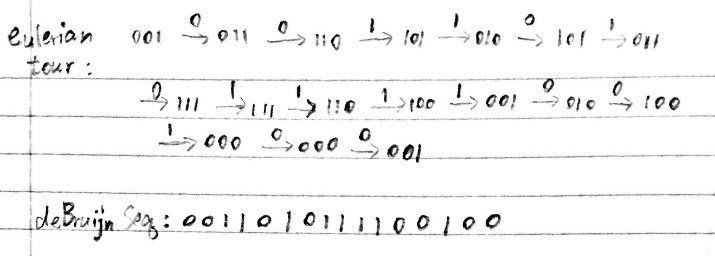 eulerian 001 0→ 011 0→ 110 1→ 101 1→ 010 0→ 101 1→ 011
tour :
0→ 111 1→ 111 1→ 110 1→ 100 1→ 001 0→ 010 0→ 100
1→ 000 0→ 000 0→ 001
deBruijn Seq : 0 0 1 1 0 1 0 1 1 1 1 0 0 1 0 0